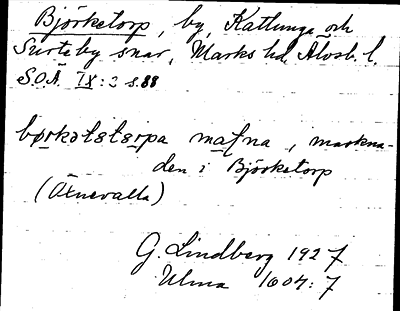 Björketorp, by, Kattunga och
Surteby snar, Marks hd, Älvsb. l.
SOÄ IX:2 s. 88
børkətstørpa mafna, markna-
den i Björketorp
(Öxnevalla)
G. Lindberg 1927
Ulma 1604:7